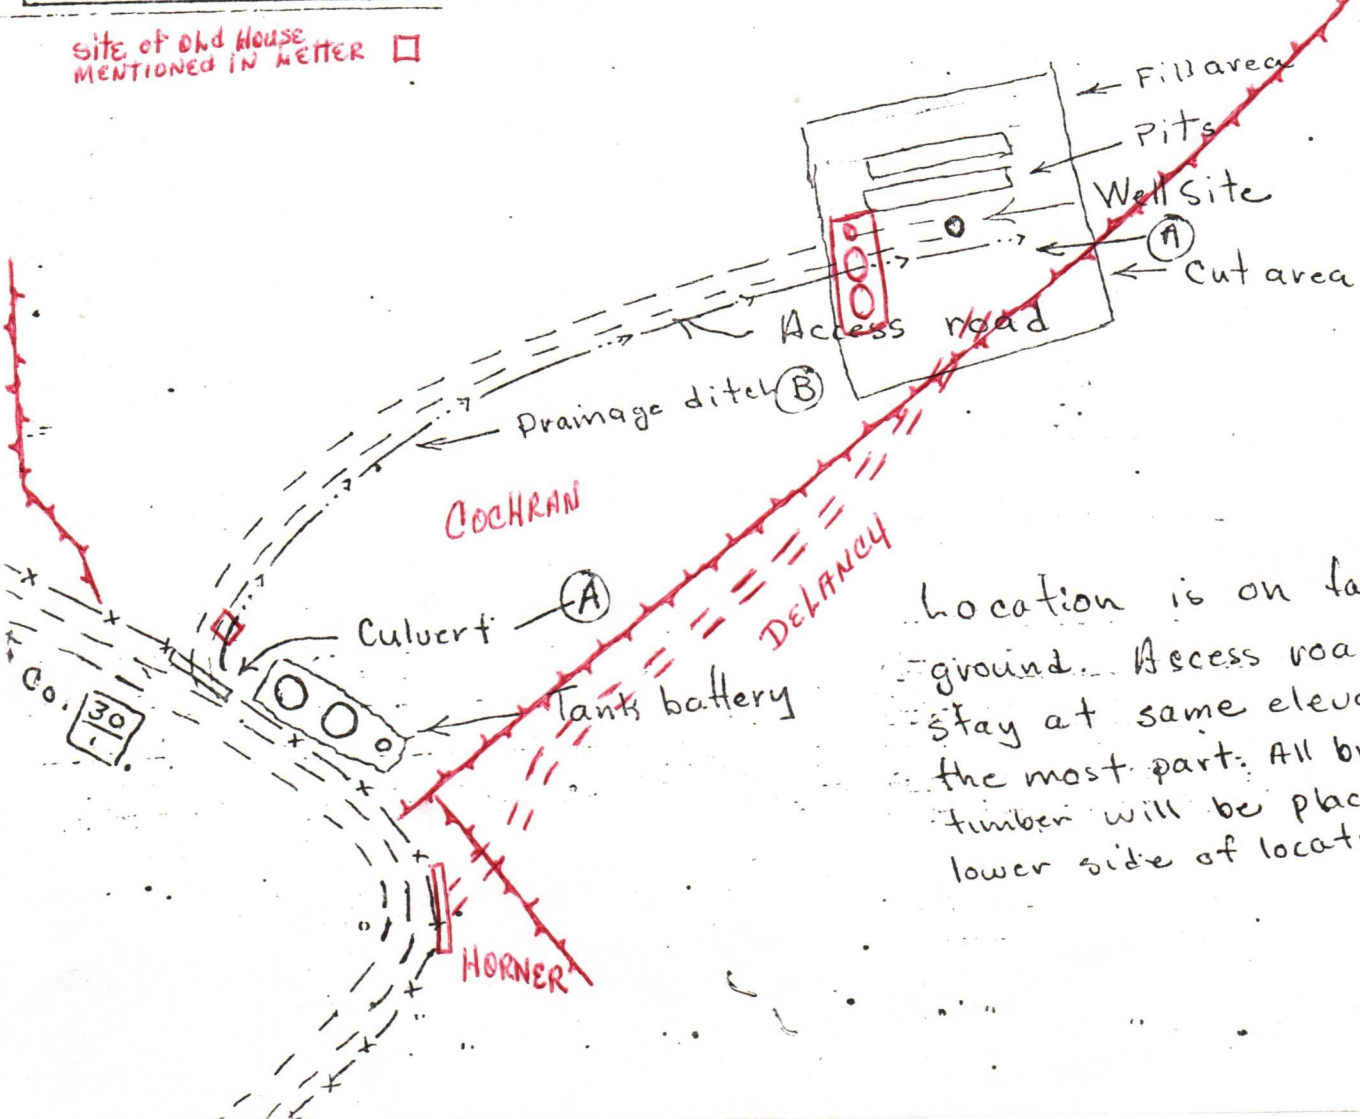 SITE OF OLD HOUSE
MENTIONED IN LETTER
Fill area
Pits
Well site
A
Cut area
Access road
Drainage ditch B
COCHRAN
DELANCY
Culvert A
Tank battery
Co. 30
1
HORNER
Location is on
ground. Access
stay at same
the most part. All
timber will be
lower side of